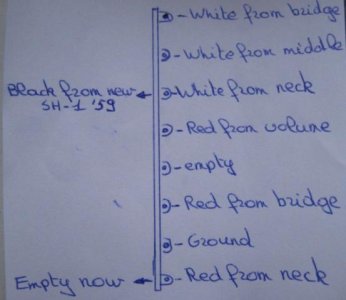 - White from bridge
- White from middle
Black from new
SH-1 '59
- White from neck
- Red from volume
- empty
- Red from bridge
- Ground
Empty now
- Red from neck